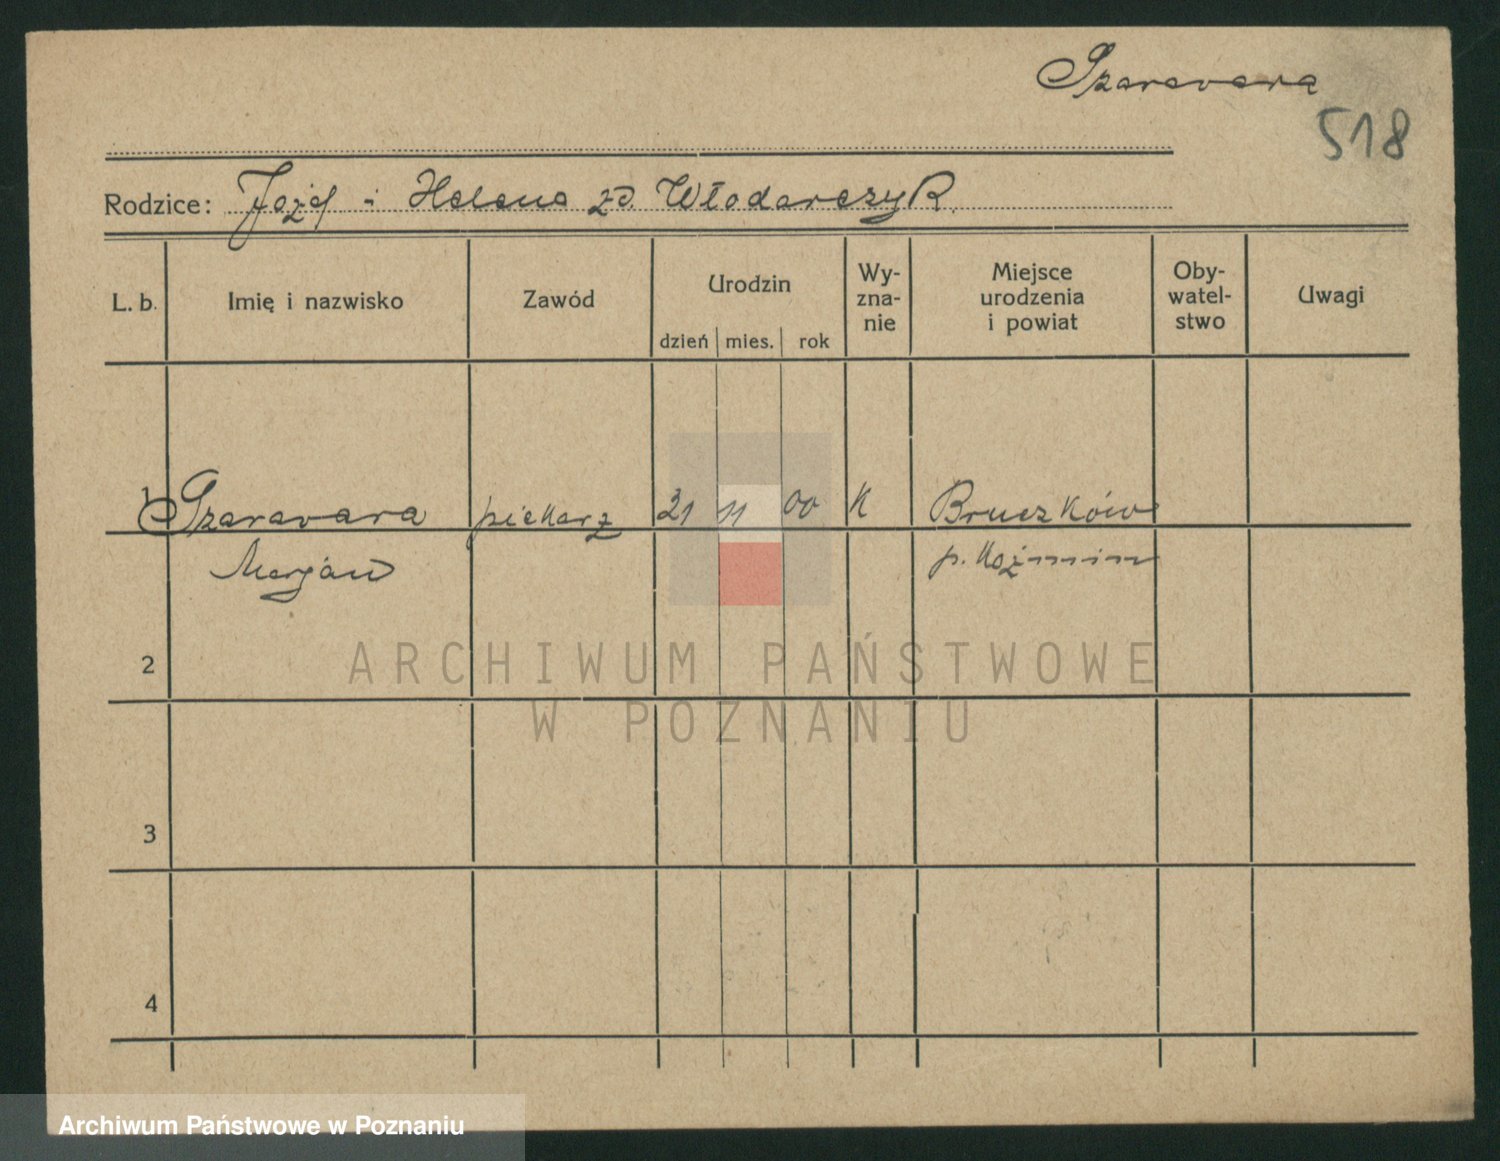 Szaravara
518
Rodzice: Józef i Helena zd. Włodarczyk
L. b. Imię i nazwisko Zawód Urodzin dzień mies. rok Wy-zna-nie Miejsce urodzenia i powiat Oby-watel-stwo Uwagi
1 Szaravara piekarz 21 11 00 K Bruczków
Marjan p. Koźmin
2
3
4
ARCHIWUM PAŃSTWOWE
W POZNANIU
Archiwum Państwowe w Poznaniu